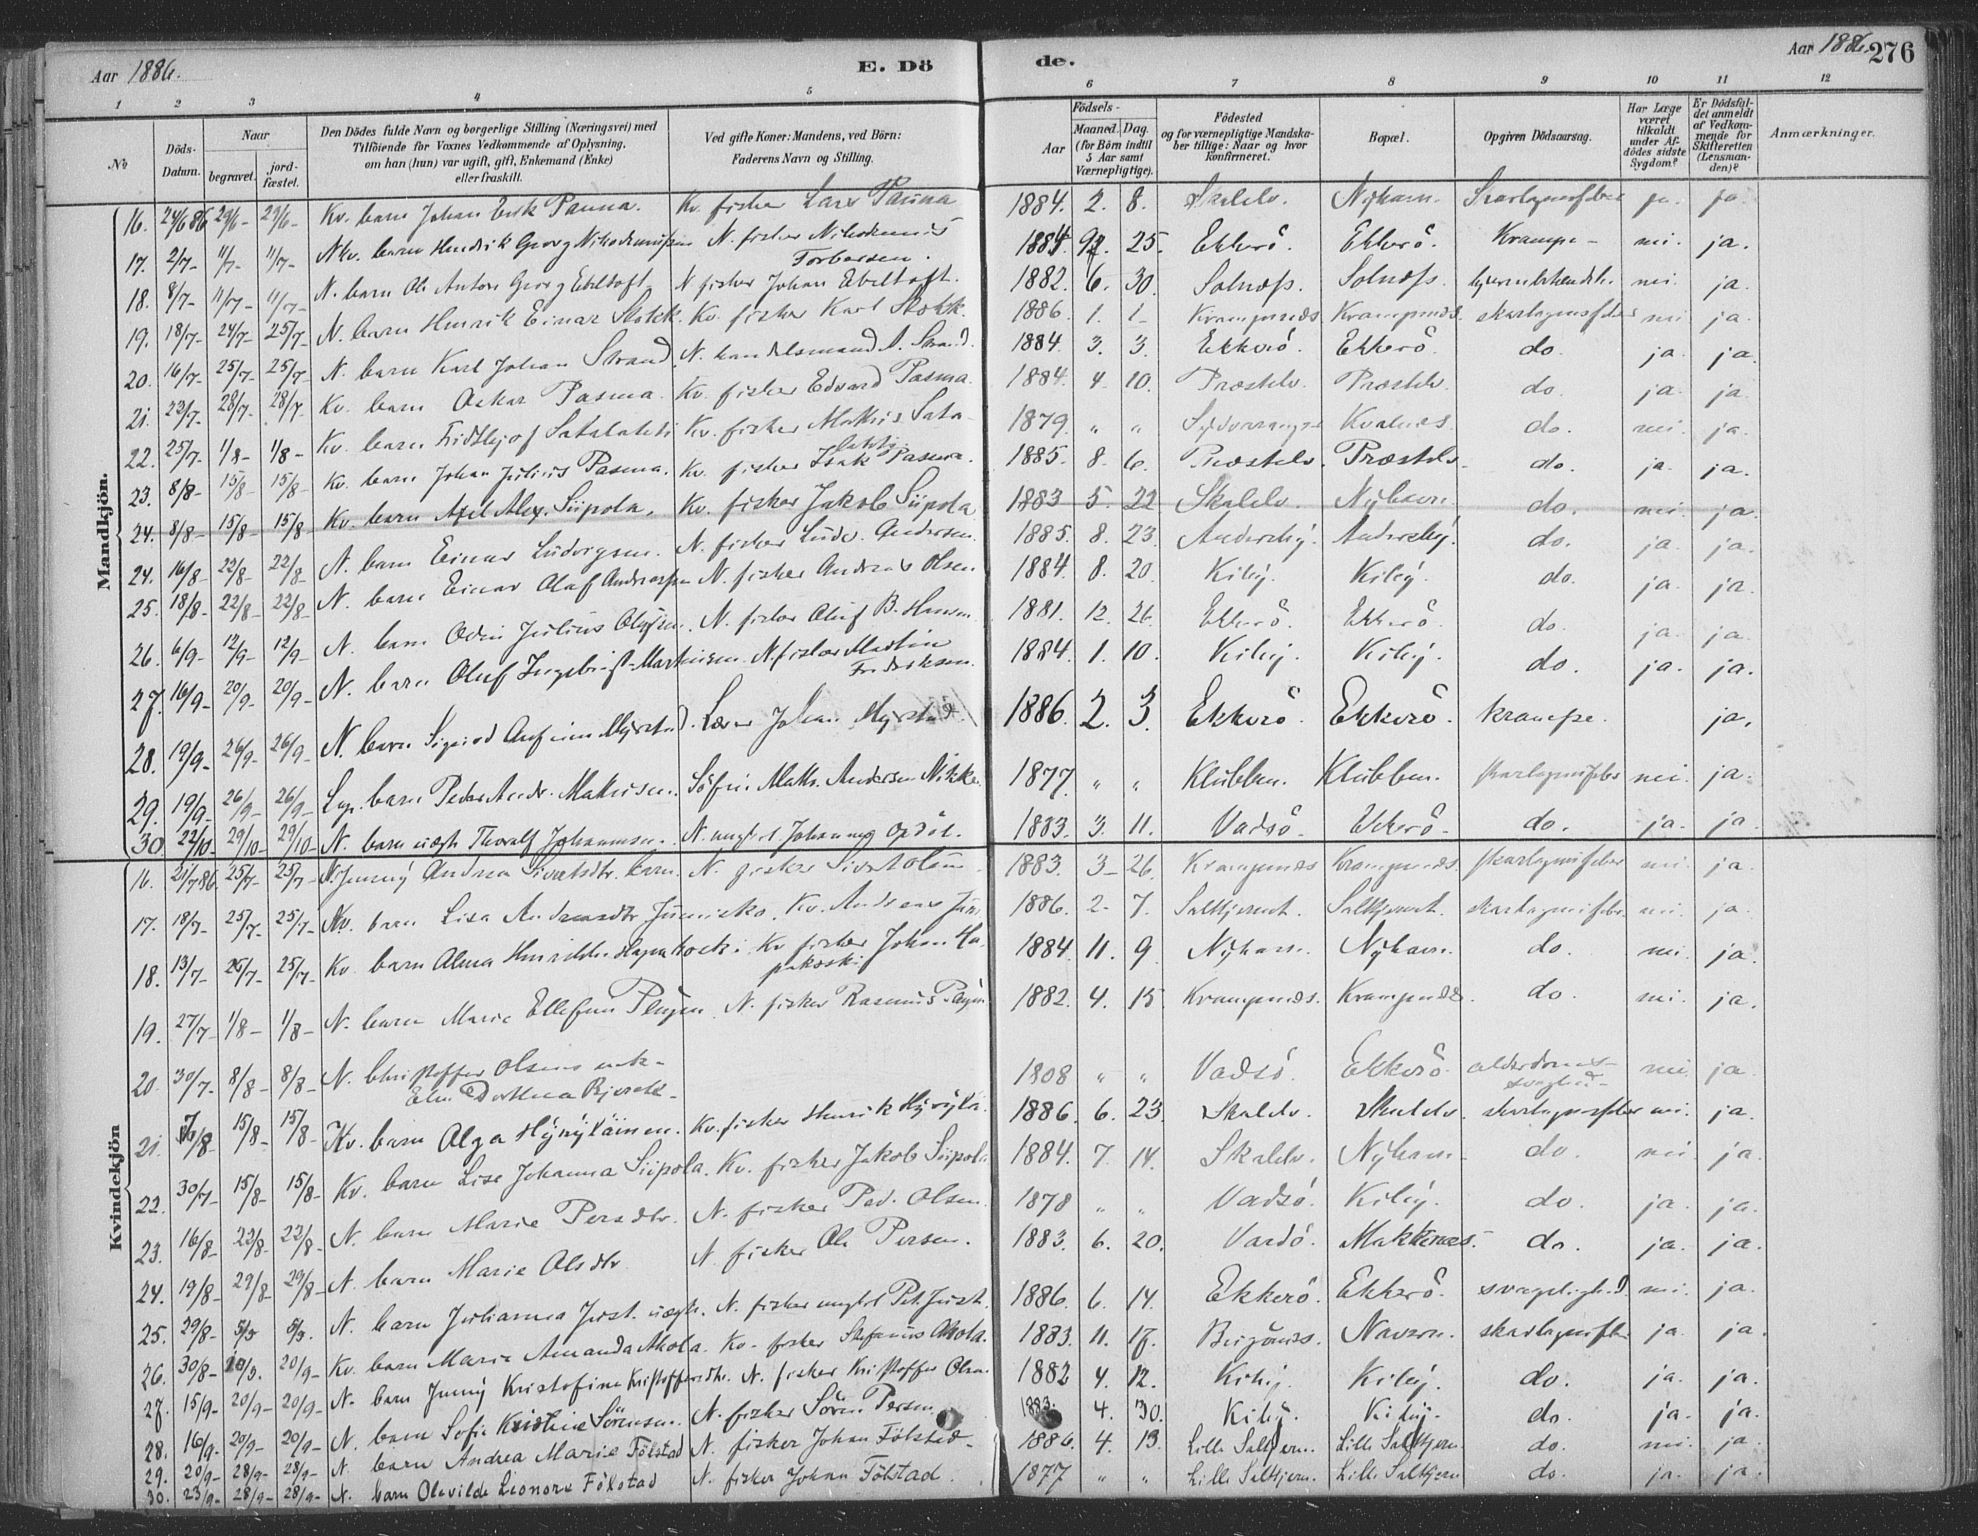 Aar 1886.
E. Dö
de.
Aar 1886.
276
1 2 3 4 5 6 7 8 9 10 11 12
No
Döds-Datum.
Naar
begravet.
jord-fæstet.
Den Dödes fulde Navn og borgerlige Stilling (Næringsvei) med
Tilföiende for Voxnes Vedkommende af Oplysning,
om han (hun) var ugift, gift, Enkemand (Enke)
eller fraskilt.
Ved gifte Koner: Mandens, ved Börn:
Faderens Navn og Stilling.
Födsels-
Aar
Maaned. Dag.
(for Börn indtil
5 Aar samt
Værnepligtige).
Födested
og for værnepligtige Mandska-
ber tillige: Naar og hvor
konfirmeret.
Bopæl.
Opgiven Dödsaarsag.
Har Læge
været
tilkaldt
under Af-
dödes sidste
Sygdom?
Er Dödsfal-
det anmeldt
af Vedkom-
mende for
Skifteretten
(Lensman-
den)?
Anmærkninger.
Mandkjön.
16. 24/6 86 29/6- 29/6- Kv. barn Johan Erik Panna. Kv. fisker Lars Panna 1884. 2. 8. Skaldv. Nyhavn. Skarlagensfeber ja. ja.
17. 2/7- 11/7- 11/7- Nkv. barn Hendrik Georg Nikodemussen N. fisker Nikodemus 1884 25. Ekkerö. Ekkerö. Krampe- nei. ja.
18. 8/7- 11/7- 11/7- N. barn Ole Anton Georg Ebeltoft. N fisker Johan Ebeltoft. 1882. 6. 30. Solnæss. Solnæss. nei. ja.
19. 18/7- 24/7- 25/7- N. barn Henrik Einar Stokk. Kv. fisker Karl Stokk. 1886. 1. 1- Krampenæs Krampenæs. skarlagensfeber nei ja.
20. 16/7- 25/7- 25/7 N. barn Karl Johan Strand. N. handelsmand A. Strand. 1884. 3. 3. Ekkerö. Ekkerö. do. ja. ja.
21. 23/7- 28/7- 28/7- Kv. barn Oskar Pasma. Kv. fisker Edvard Pasma. 1884. 4. 10. Præstelv. Præstelv. do. ja. ja.
22. 25/7- 1/8- 1/8- Kv. barn Fridthjof Satalahti Kv. fisker Mathis Sata- 1879. " " Sydvaranger Kvalnæs. do. nei. ja.
lahti.
23. 8/8- 15/8- 15/8- Kv. barn Johan Julius Pasma. Kv. fisker Isak Pasma. 1885. 8. 6. Præstelv. Præstelv. do. ja. ja.
24. 8/8- 15/8- 15/8 Kv. barn Axel Alex. Siipola. Kv. fisker Jakob Siipola 1883 5. 22 Skaldv. Nyhavn. do. nei. ja.
24. 16/8- 22/8- 22/8- N. barn Einar Ludvigsen. N. fisker Ludv. Andersen. 1885. 8. 23. Andersby. Andersby. do. ja. ja.
25. 18/8- 22/8- 22/8- N. barn Einar Olaf Andreassen N. fisker Andreas Olsen. 1884. 8. 20. Kiby. Kiby. do. ja. ja.
26. 6/9- 12/9- 12/9- N. barn Odin Julius Olufsen. N. fisker Oluf B. Hansen 1881. 12. 26. Ekkerö. Ekkerö. do. ja. ja.
27. 16/9- 20/9- 20/9- N. barn Oluf Ingebrigt Martinsen. N. fisker Martin 1884. 1. 10. Kiby. Kiby. do. ja. ja.
Fredriksen.
28. 19/9- 26/9- 26/9- N. barn Sigurd Myrstad. Lærer Johan Myrstad. 1886. 2. 3. Ekkerö. Ekkerö. krampe. ja.
29. 19/9- 26/9- 26/9- Lap. barn Peder Andr. Mathisen. Söfin. Math. Andersen Nikke. 1877. " " Klubben. Klubben. skarlagensfeber nei. ja.
30. 22/10 29/10- 29/10- N. barn uægte Thoralf Johannesen. N. ungkarl Johannes Opdöl. 1883. 3. 11. Vadsö. Ekkerö. do. ja. ja.
Kvindekjön
16. 21/7 86. 25/7- 25/7- N. Jenny Andrea Sivertsdtr. barn. N. fisker Sivert Olsen 1883. 3- 26. Krampenæs Krampenæs. skarlagensfeber nei. ja
17. 18/7- 25/7- 25/7- Kv. barn Lisa Andreasdtr. Kv. Andreas 1886. 2- 7. Saltkjernet. Saltkjernet. skarlagensfeber. nei. ja.
18. 13/7- 25/7- 25/7- Kv. barn Alma Hapakoski. Kv fisker Johan Ha- 1884. 11. 9. Nyhavn. Nyhavn. do. nei. ja.
pakoski
19. 27/7- 1/8- 1/8- N. barn Marie Ellefine N. fisker Rasmus 1882. 4. 15. Krampenæs. Krampenæs. do. nei. ja.
20. 30/7- 8/8- 8/8- N. Christoffer Olsens enke- 1808 " " Vadsö. Ekkerö. alderdoms- nei. ja.
svaghed-
21. 7/8- 15/8- 15/8- Kv. barn Olga Hyryläinen. Kv. fisker Henrik Hyrylä. 1886. 6. 23. Skaldv. Skaldv. skarlagensfeber nei. ja.
22. 30/7- 15/8- 15/8- Kv. barn Lise Johanna Siipola. Kv. fisker Jakob Siipola 1884. 7. 14. Skaldv. Nyhavn. do. nei. ja.
23. 16/8- 22/8- 22/8- N. barn Marie Persdtr. N. fisker Ped. Olsen. 1878 " " Vadsö. Kiby. do. ja. ja.
24. 19/8- 29/8- 29/8- N. barn Marie Olsdtr N. fisker Ole Persen. 1883. 6. 20. Vardö. Makkenæs. do. ja. ja.
25. 29/8- 5/9 5/9. N. barn Julianna Just. uægte. N. fisker ungkarl Pet. Just. 1886. 6. 14. Ekkerö. Ekkerö. svagelighed. nei. ja.
26. 30/8- 20/9. 20/9- Kv. barn Marie Amanda Akola. Kv. fisker Stefanus Akola. 1883. 11. 17. Navern. skarlagensfeber ja. ja.
27. 15/9- 20/9- 20/9- N. barn Jenny Kristofine Kristoffersdtr. N. fisker Kristoffer Olsen 1882 4. 12. Kiby. Kiby. do. ja. ja.
28. 16/9. 20/9- 20/9- N. barn Sofie Kristine Sörensen. N. fisker Sören Persen 1883. 4. 30. Kiby. Kiby. do. ja. ja.
29. 20/9- 28/9- 28/9- N. barn Andrea Marie Fölstad N. fisker Johan Fölstad- 1886. 4. 13. Lille Saltkjern. Lille Saltkjern do. nei. ja
30. 23/9- 28/9- 28/9- N. barn Olevilde Leonore Fölstad N. fisker Johan Fölstad. 1877 " " Lille Saltkjern. Lille Saltkjern do. ja. ja.